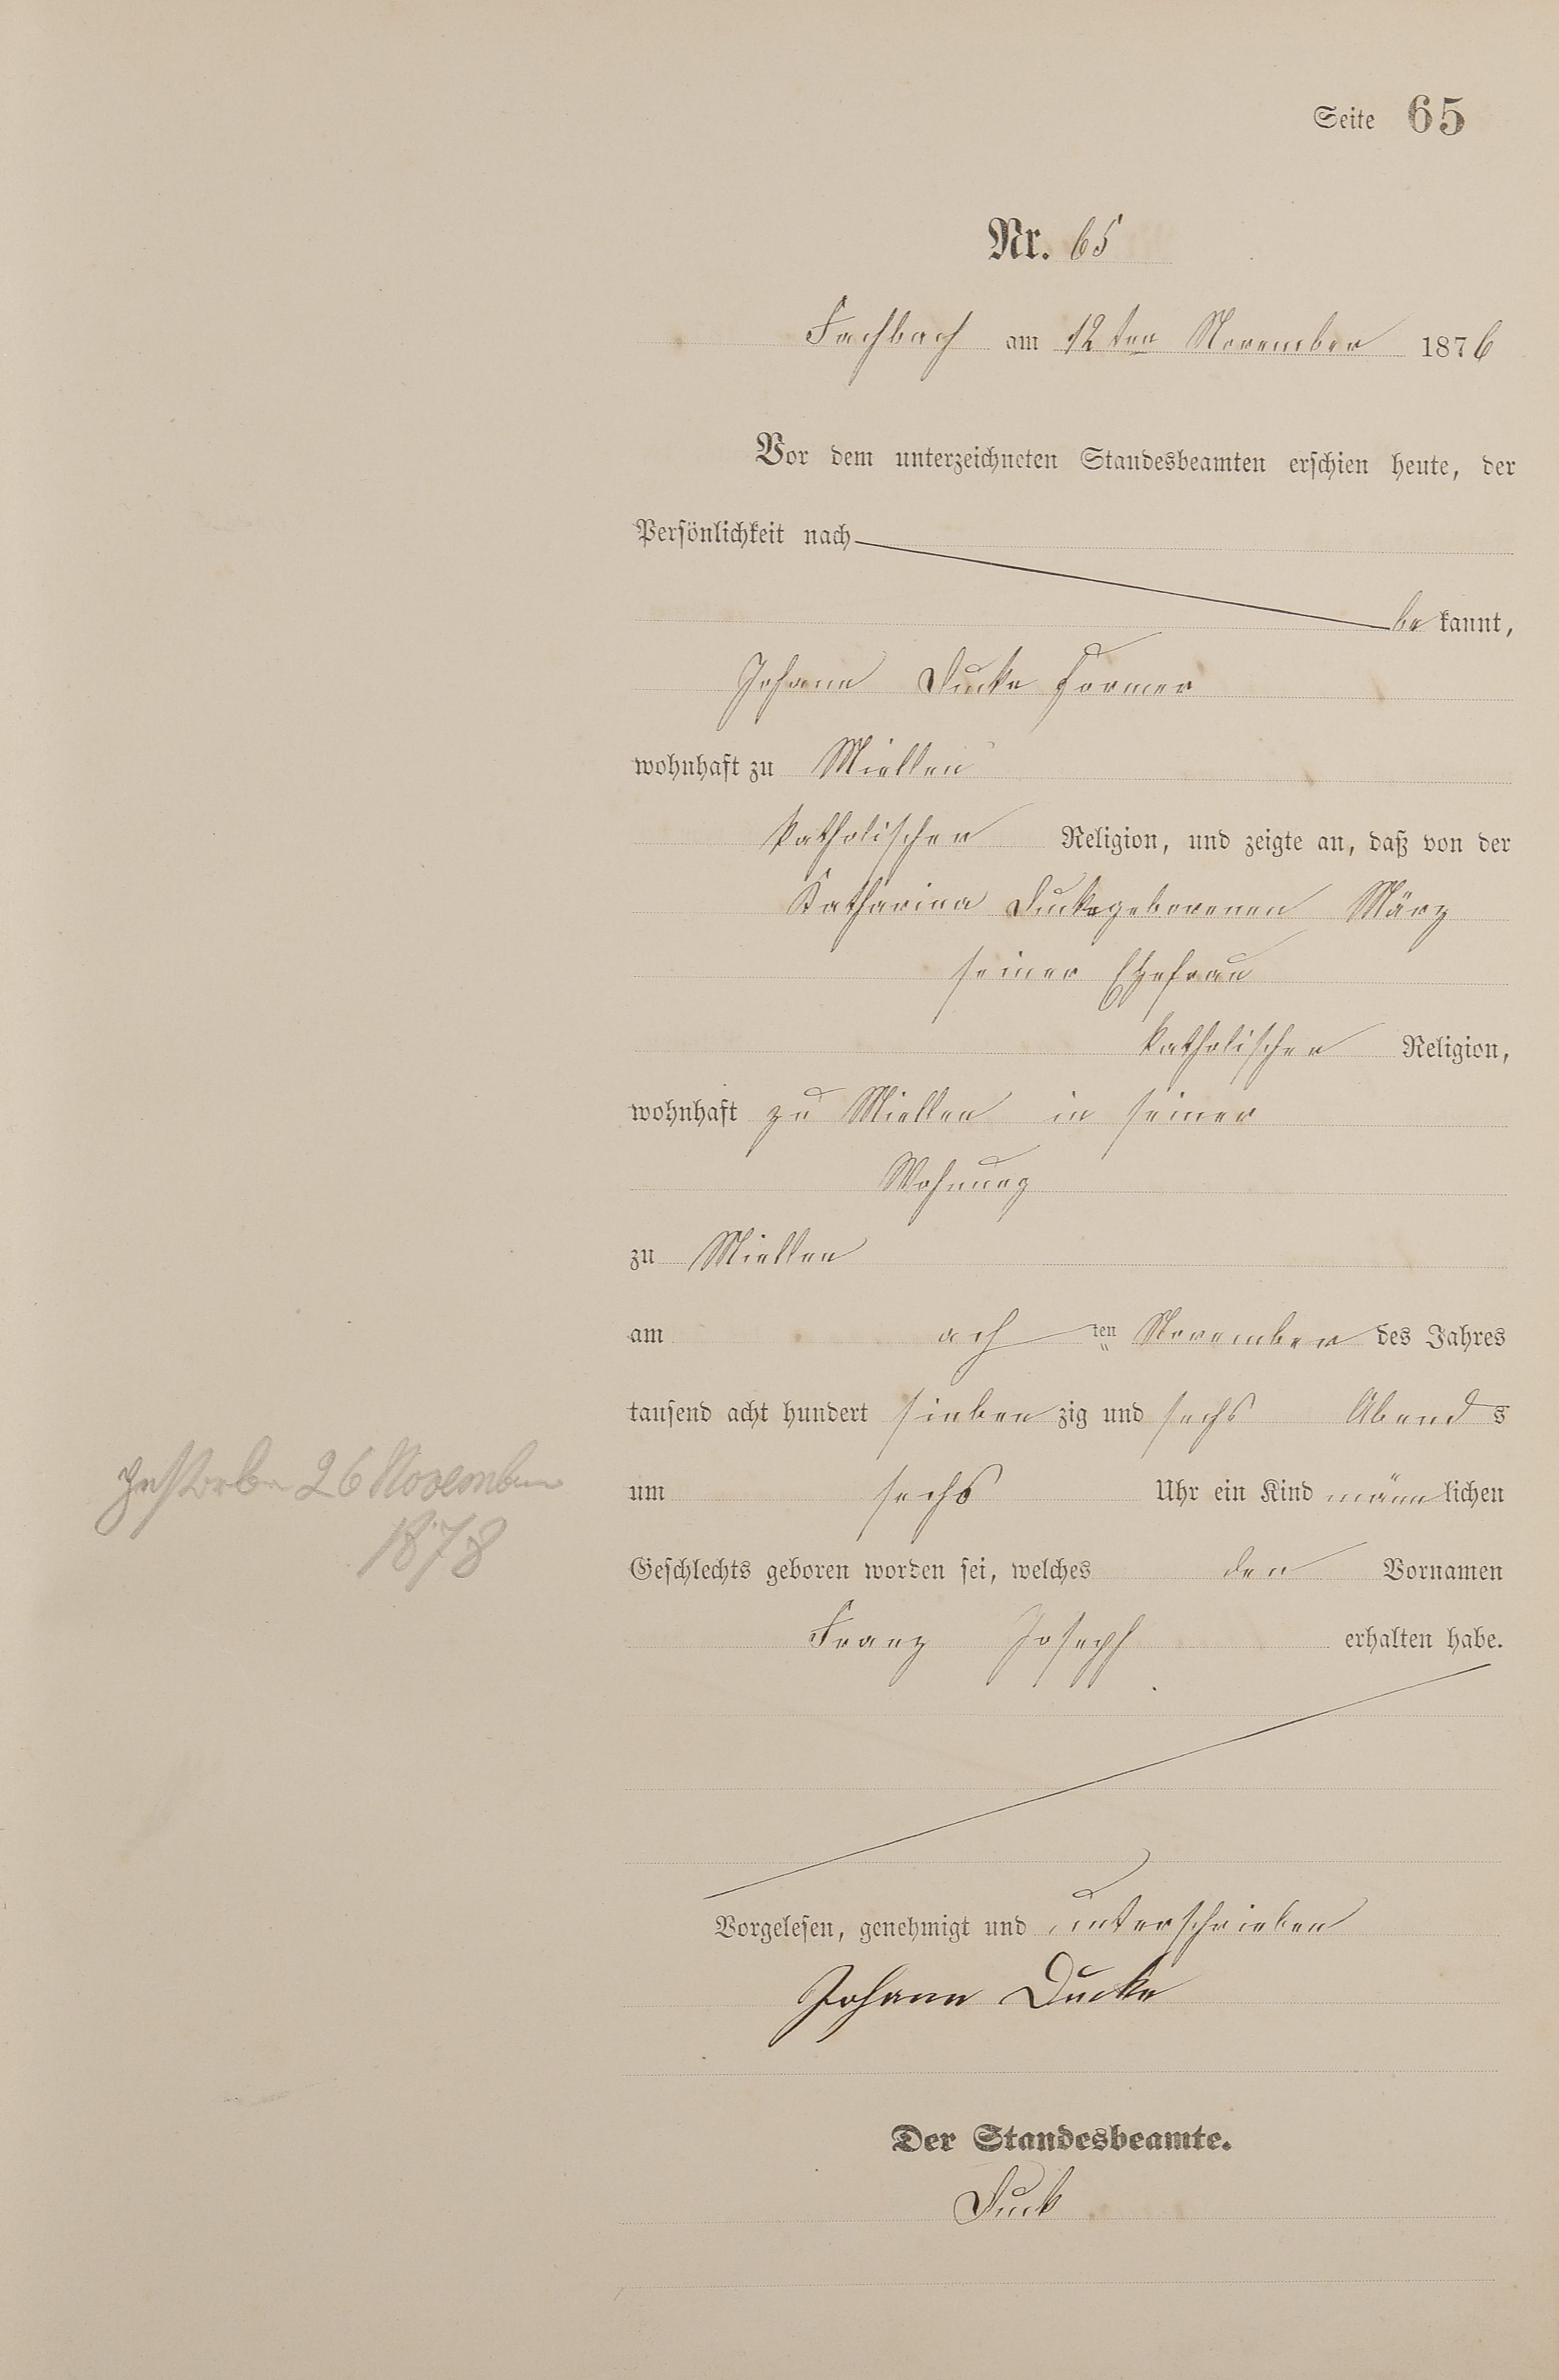 Seite 65
Nr. 65
Fachbach am 12ten November 1876
Vor dem unterzeichneten Standesbeamten erschien heute, der
Persönlichkeit nach
bekannt,
Johann Ducke Former
wohnhaft zu Miellen
katholischer Religion, und zeigte an, daß von der
Katharina Ducke geborenen März
seiner Ehefrau
katholischer Religion,
wohnhaft zu Miellen in seiner
Wohnung
zu Miellen
am achten November des Jahres
tausend acht hundert siebenzig und sechs Abends
um sechs Uhr ein Kind männlichen
gestorben 26 November
1878
Geschlechts geboren worden sei, welches den Vornamen
Franz Joseph erhalten habe.
Vorgelesen, genehmigt und unterschrieben
Johann Ducke
Der Standesbeamte.
Duck